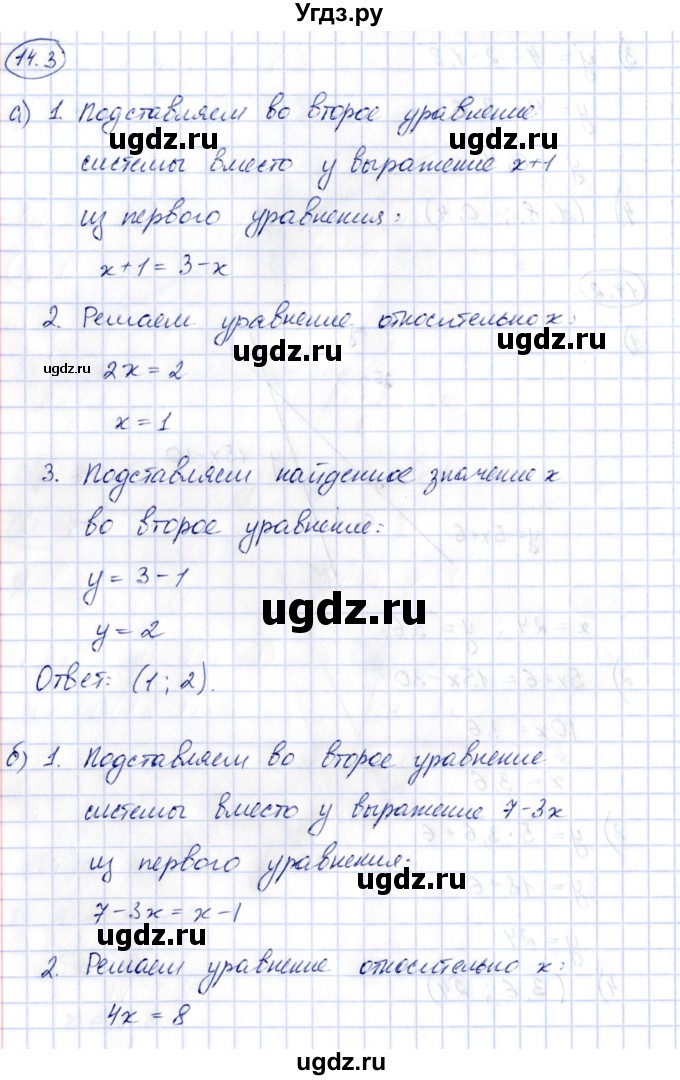 Угдз.ру
14.3
а) 1. Подставляем во второе уравнение
ugdz.ru ugdz.ru
системы вместо y выражение x+1
из первого уравнения:
ugdz.ru ugdz.ru
x+1 = 3-x
2. Решаем уравнение относительно x:
ugdz.ru ugdz.ru
ugdz.ru
2x = 2
x = 1
3. Подставляем найденное значение x
ugdz.ru ugdz.ru
во второе уравнение:
y = 3-1
ugdz.ru
y = 2
Ответ: (1; 2).
ugdz.ru ugdz.ru
б) 1. Подставляем во второе уравнение
системы вместо y выражение 7-3x
из первого уравнения:
ugdz.ru
7-3x = x-1
ugdz.ru
2. Решаем уравнение относительно x:
ugdz.ru
4x = 8
ugdz.ru
ugdz.ru